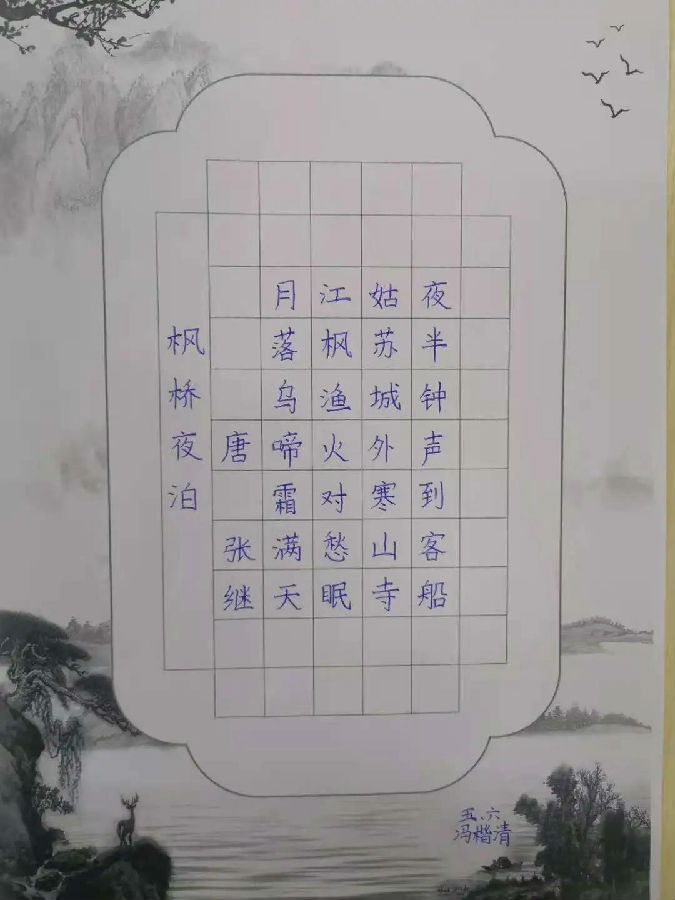 枫桥夜泊
唐 张继
月落乌啼霜满天
江枫渔火对愁眠
姑苏城外寒山寺
夜半钟声到客船
五、六
冯楷清